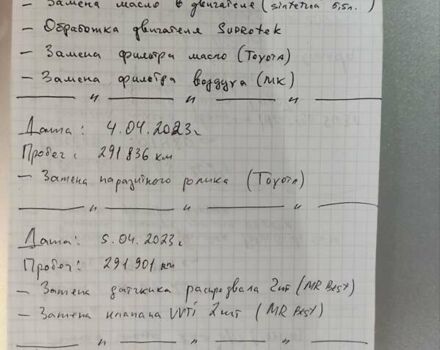 - Замена масло в двигателе (sintetna 5,5л.)
- Обработка двигателя Suprotek
- Замена фильтра масло (Toyota)
- Замена фильтра воздуха (MK)
— " — " — " —
Дата: 4.04.2023г
Пробег: 291.836 км
- Замена паразитного ролика (Toyota)
— " — " — " —
Дата: 5.04.2023г
Пробег: 291 901 км
- Замена датчика распредвала 2шт (MR Best)
- Замена клапана VVTi 2шт (MR Best)
— " — " — " —